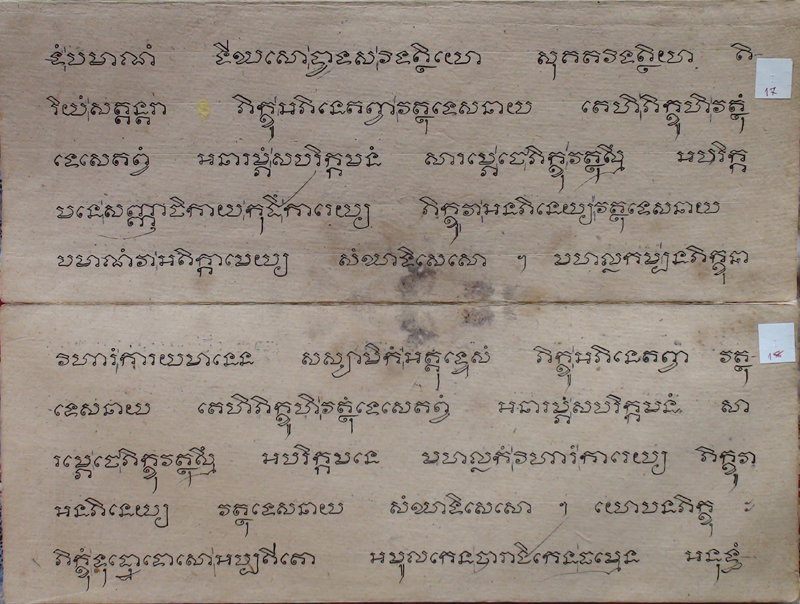 ទំបមាណំ ទីឃសោទ្វាទសវិទត្ថិយោ សុគតវិទត្ថិយា តិ
រិយំសត្តន្តរា ភិក្ខូអភិនេតព្វាវត្ថុទេសនាយ តេហិភិក្ខូហិវត្ថុំ
ទេសេតព្វំ អនារម្ភំសបរិក្កមនំ សារម្ភេចេភិក្ខុវត្ថុស្មឹ អបរិក្ក
មនេសញ្ញាចិកាយកុដឹការេយ្យ ភិក្ខូវាអនភិនេយ្យវត្ថុទេសនាយ
បមាណំវាអតិក្កាមេយ្យ សំឃាទិសេសោ ៗ មហល្លកម្បនភិក្ខុនា
វិហារំការយមានេន សស្សាមិកំអត្តុទ្ទេសំ ភិក្ខូអភិនេតព្វា វត្ថុ
ទេសនាយ តេហិភិក្ខូហិវត្ថុំទេសេតព្វំ អនារម្ភំសបរិក្កមនំ សា
រម្ភេចេភិក្ខុវត្ថុស្មឹ អបរិក្កមនេ មហល្លកំវិហារំការេយ្យ ភិក្ខូវា
អនភិនេយ្យ វត្ថុទេសនាយ សំឃាទិសេសោ ៗ យោបនភិក្ខុ
ភិក្ខុំទុដ្ឋោទោសោអប្បតីតោ អមូលកេនបារាជិកេនធម្មេន អនុទ្ធំ
17
18